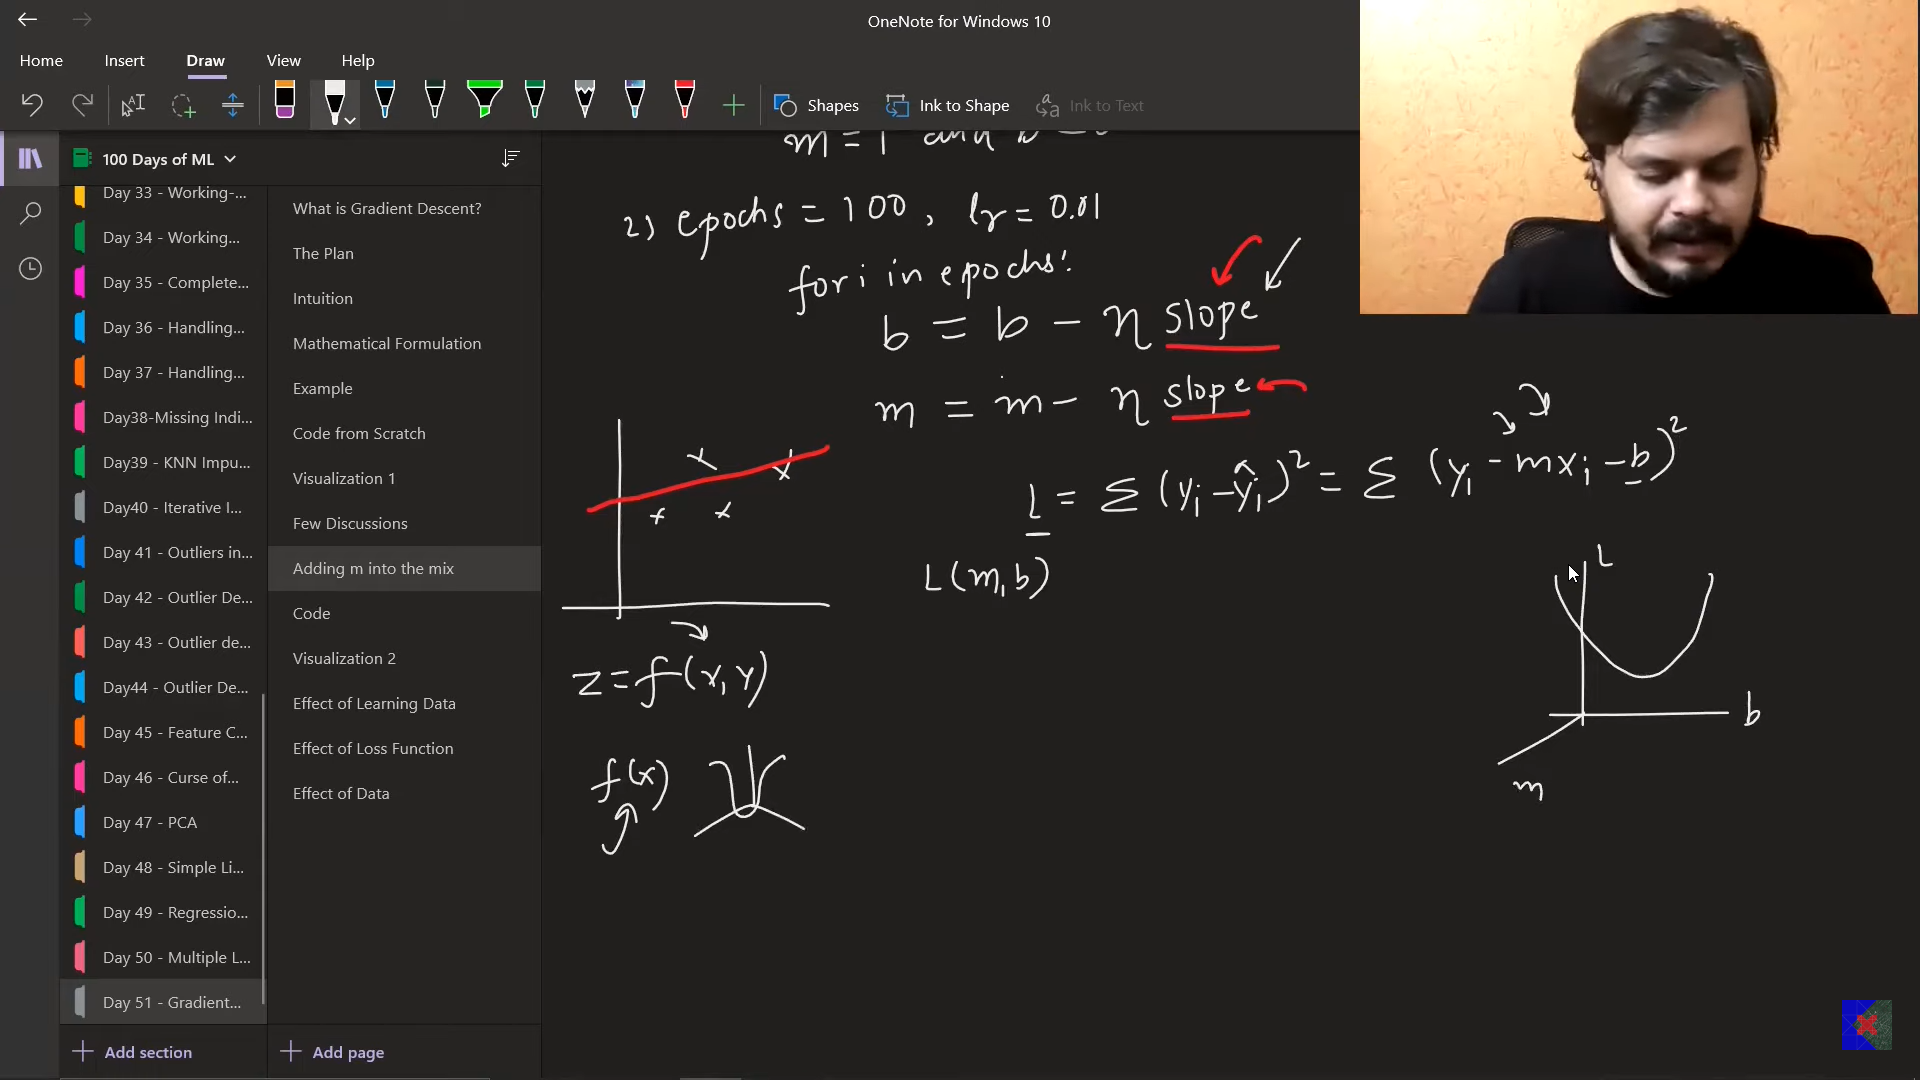 OneNote for Windows 10
Home Insert Draw View Help
Shapes Ink to Shape Ink to Text
100 Days of ML
Day 33 - Working-...
Day 34 - Working...
Day 35 - Complete...
Day 36 - Handling...
Day 37 - Handling...
Day38-Missing Indi...
Day39 - KNN Impu...
Day40 - Iterative I...
Day 41 - Outliers in...
Day 42 - Outlier De...
Day 43 - Outlier de...
Day44 - Outlier De...
Day 45 - Feature C...
Day 46 - Curse of...
Day 47 - PCA
Day 48 - Simple Li...
Day 49 - Regressio...
Day 50 - Multiple L...
Day 51 - Gradient...
Add section
What is Gradient Descent?
The Plan
Intuition
Mathematical Formulation
Example
Code from Scratch
Visualization 1
Few Discussions
Adding m into the mix
Code
Visualization 2
Effect of Learning Data
Effect of Loss Function
Effect of Data
Add page
m = 1 and
2) epochs = 100, lr = 0.01
for i in epochs:
b = b - η slope
m = m - η slope
L = Σ (yi - ŷi)² = Σ (yi - mxi - b)²
L(m,b)
z = f(x,y)
f(x)
L
b
m